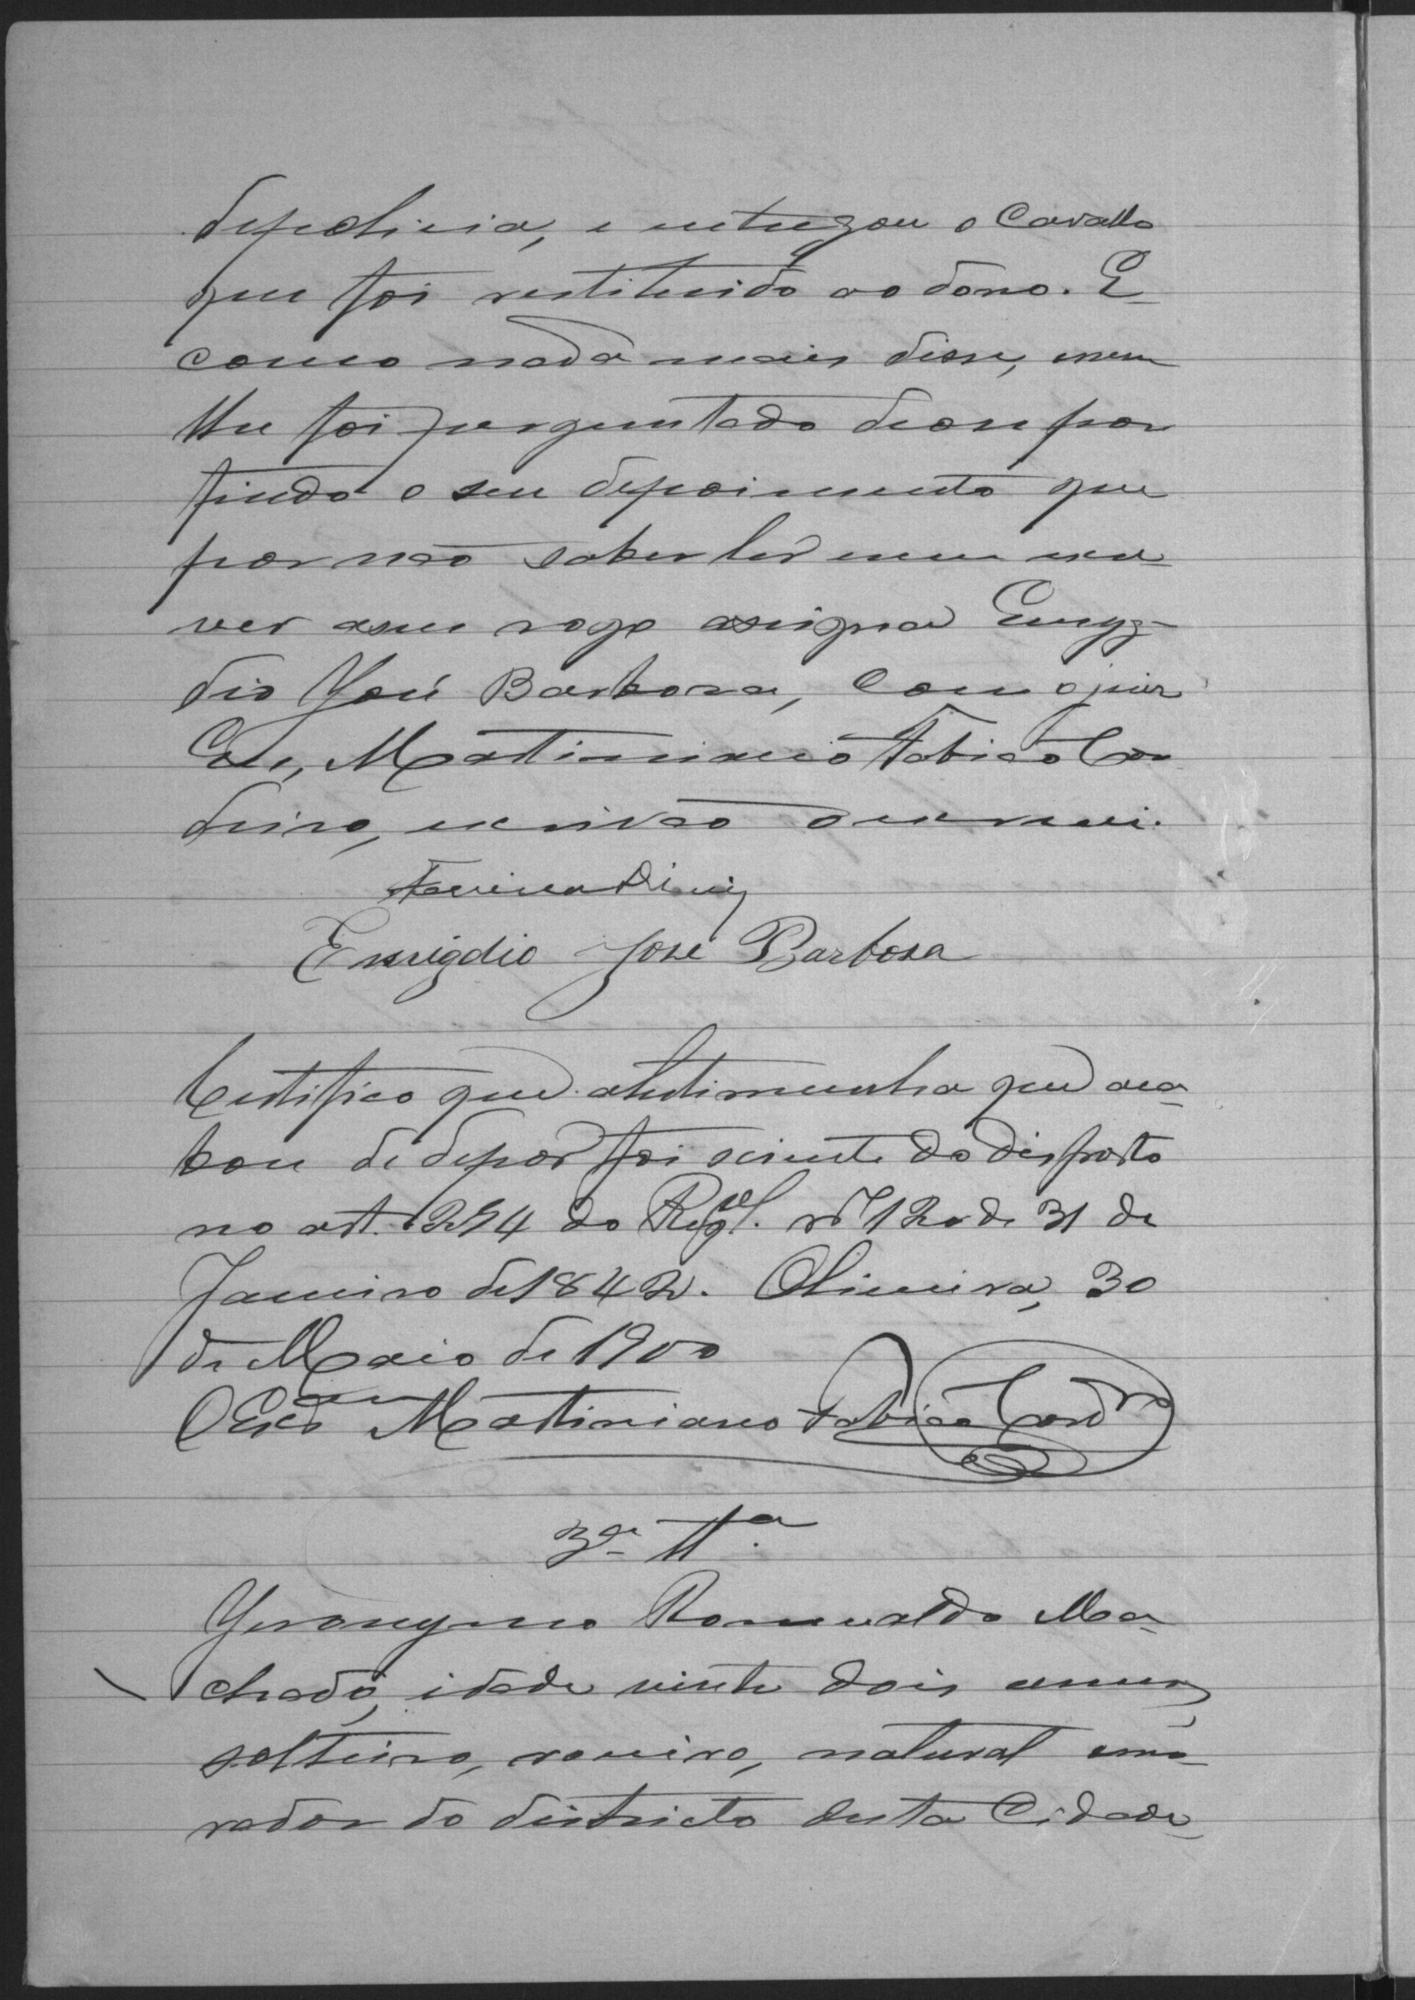 depolicia, e entregou o Cavallo
que foi restituido ao dono. E
como nada mais disse, enem
lhe foi perguntado deose por
findo o seu depoimento que
por não saber ler nem escre
ver aseu rogo assigna Emyg-
dio José Barbosa, com o juiz
Eu, Martiniano Fabião Cor
deiro, escrivão o escrevi.
Emigdio José Barbosa
Certifico que atestimunha que aca-
bou de depor foi sciente do disposto
no art. 294 do Regl. nº 120 de 31 de
Janeiro de 1842. Oliveira, 30
de Maio de 1900
O Escam Martiniano Fabião Cordro
3ª Tta.
Jeronymo Romualdo Ma-
chado, idade vinte dois annos,
solteiro, roceiro, natural emo-
rador do districto desta Cidade